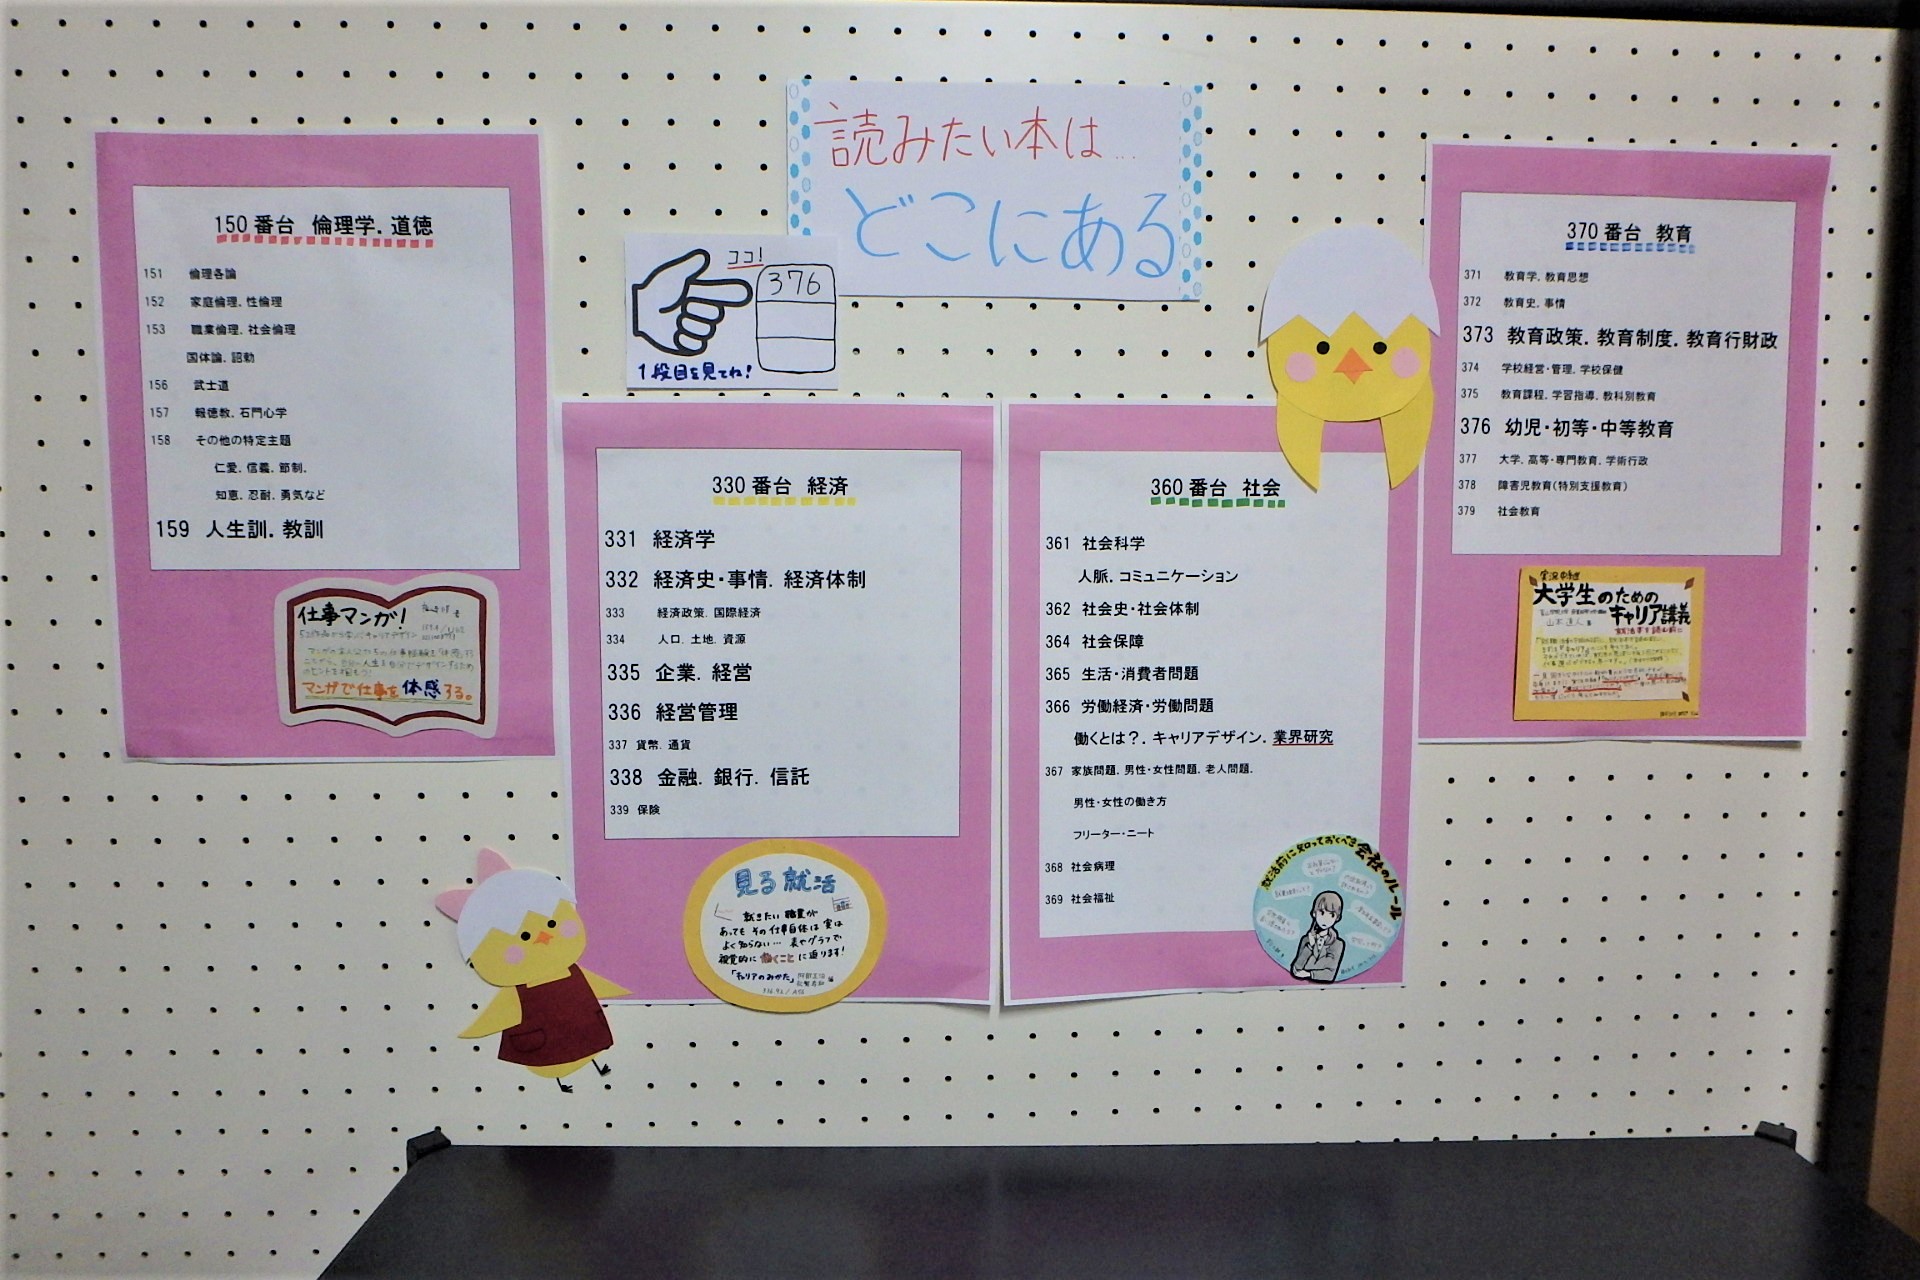 読みたい本は...
どこにある
ココ!
376
1段目を見てね!
150番台 倫理学. 道徳
151 倫理各論
152 家庭倫理. 性倫理
153 職業倫理. 社会倫理
国体論. 詔勅
156 武士道
157 報徳教. 石門心学
158 その他の特定主題
仁愛. 信義. 節制.
知恵. 忍耐. 勇気など
159 人生訓. 教訓
仕事マンガ!
マンガで仕事を体感する。
330番台 経済
331 経済学
332 経済史・事情. 経済体制
333 経済政策. 国際経済
334 人口. 土地. 資源
335 企業. 経営
336 経営管理
337 貨幣. 通貨
338 金融. 銀行. 信託
339 保険
見る就活
就きたい職業が
あっても その仕事自体は実は
よく知らない… 表やグラフで
視覚的に働くことに迫ります!
「キャリアのみかた」
360番台 社会
361 社会科学
人脈. コミュニケーション
362 社会史・社会体制
364 社会保障
365 生活・消費者問題
366 労働経済・労働問題
働くとは?. キャリアデザイン. 業界研究
367 家族問題. 男性・女性問題. 老人問題.
男性・女性の働き方
フリーター・ニート
368 社会病理
369 社会福祉
就活前に知っておくべき会社のルール
370番台 教育
371 教育学. 教育思想
372 教育史. 事情
373 教育政策. 教育制度. 教育行財政
374 学校経営・管理. 学校保健
375 教育課程. 学習指導. 教科別教育
376 幼児・初等・中等教育
377 大学. 高等・専門教育. 学術行政
378 障害児教育(特別支援教育)
379 社会教育
実況中継
大学生のための
キャリア講義
山本直人 著
就活本を読む前に